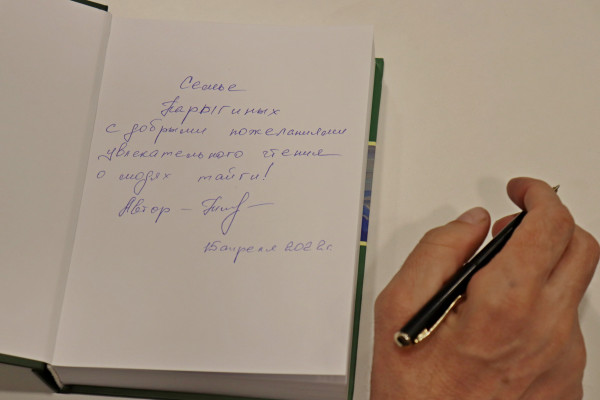 Семье
Парыгиных
с добрыми пожеланиями
увлекательного чтения
о людях тайги!
Автор –
15 апреля 2022 г.